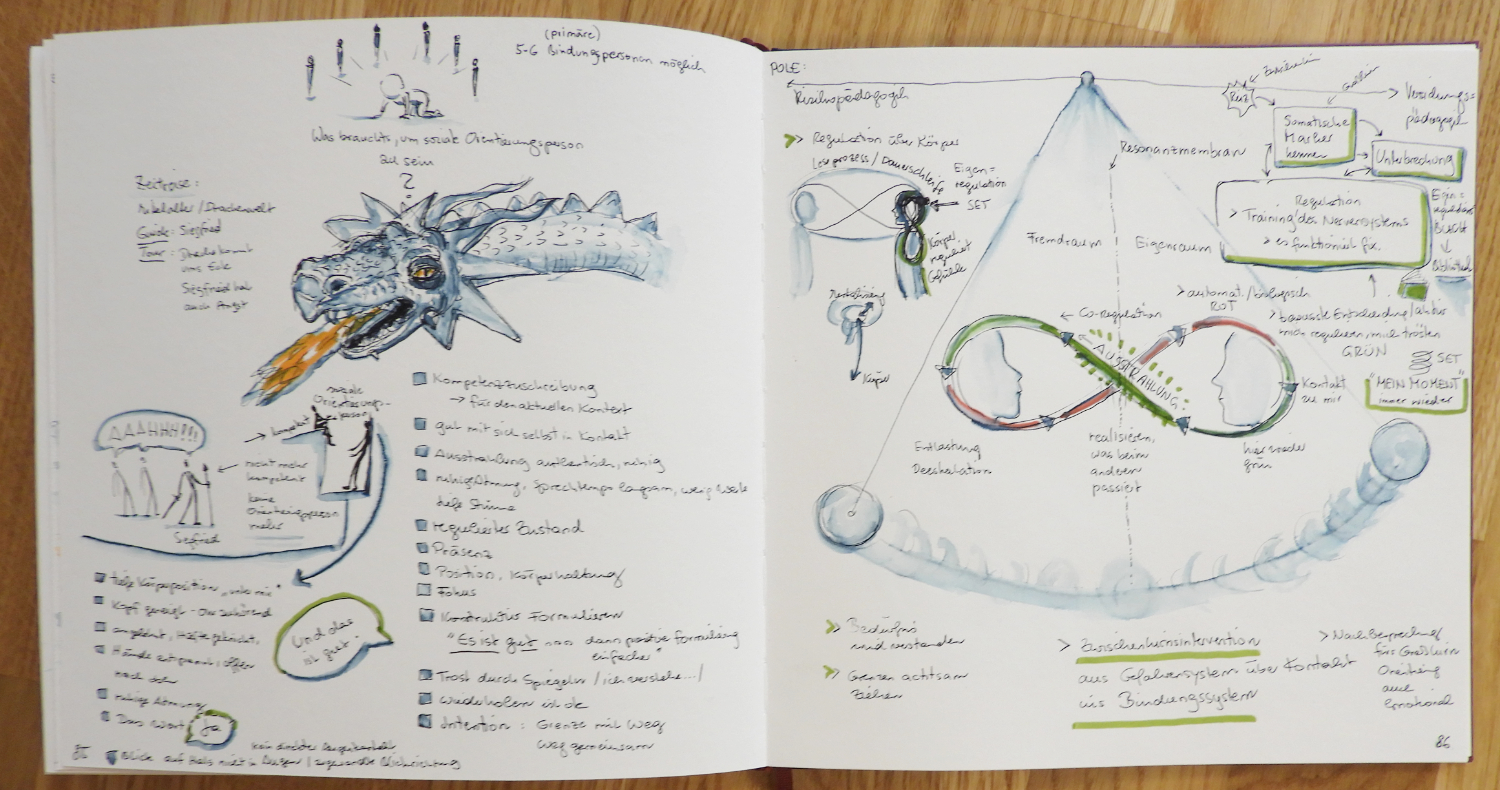 (primäre)
5-6 Bindungspersonen möglich
Was brauchts, um soziale Orientierungsperson
zu sein
?
Zeitreise:
Mittelalter/Drachenwelt
Guide: Siegfried
Tour: Drache kommt
ums Eck
Siegfried hat
auch Angst
AAAHHH!!!
→ kompetent
soziale
Orientierungs-
person
nicht mehr
kompetent
keine
Orientierungsperson
mehr
Siegfried
tiefe Körperposition „unter mir"
Kopf geneigt - Ohr zuhörend
angelehnt, Hüfte geknickt,
Hände entspannt, offen
nach oben
ruhige Atmung
Das Wort Ja
Und das
ist gut.
kein direkter Augenkontakt
Blick auf Hals nicht in Augen / Blickrichtung
85
Kompetenzzuschreibung
→ für den aktuellen Kontext
gut mit sich selbst in Kontakt
Ausstrahlung authentisch, ruhig
ruhige Atmung, Sprechtempo langsam, wenig Worte
tiefe Stimme
regulierter Zustand
Präsenz
Position, Körperhaltung
Fokus
Konstruktives Formulieren
"Es ist gut dann positive Formulierung
einfacher"
Trost durch Spiegeln / ich verstehe.../
Wiederholen ist ok
Intention: Grenze mit Weg
Weg gemeinsam
POLE:
Risikopädagogik
Reiz
Somatische
Marker
kennen
Unterbrechung
> Regulation über Körper
Leseprozess / Dauerschleife
Eigen=
regulation
SET
Körper
reguliert
Gefühle
Mentalisierung
Körper
Resonanzmembran
Fremdraum
Eigenraum
Regulation
> Training des Nervensystems
> es funktioniert fix.
Eigen=
regulations
BUCH
Bibliothek
> automat./biologisch
ROT
> bewusste Entscheidung/aktiv
mich regulieren, mich trösten
GRÜN
SET
"MEIN MOMENT"
immer wieder
← Co-Regulation
AUSSTRAHLUNG
Kontakt
zu mir
Entlastung
Deeskalation
realisieren,
was beim
anderen
passiert
hier wieder
grün
> Bedürfnis
wird verstanden
> Grenzen achtsam
ziehen
> Zwischenhirnintervention
aus Gefahrensystem über Kontakt
ins Bindungssystem
> Nachbesprechung
fürs Großhirn
Orientierung
auch
emotional
86